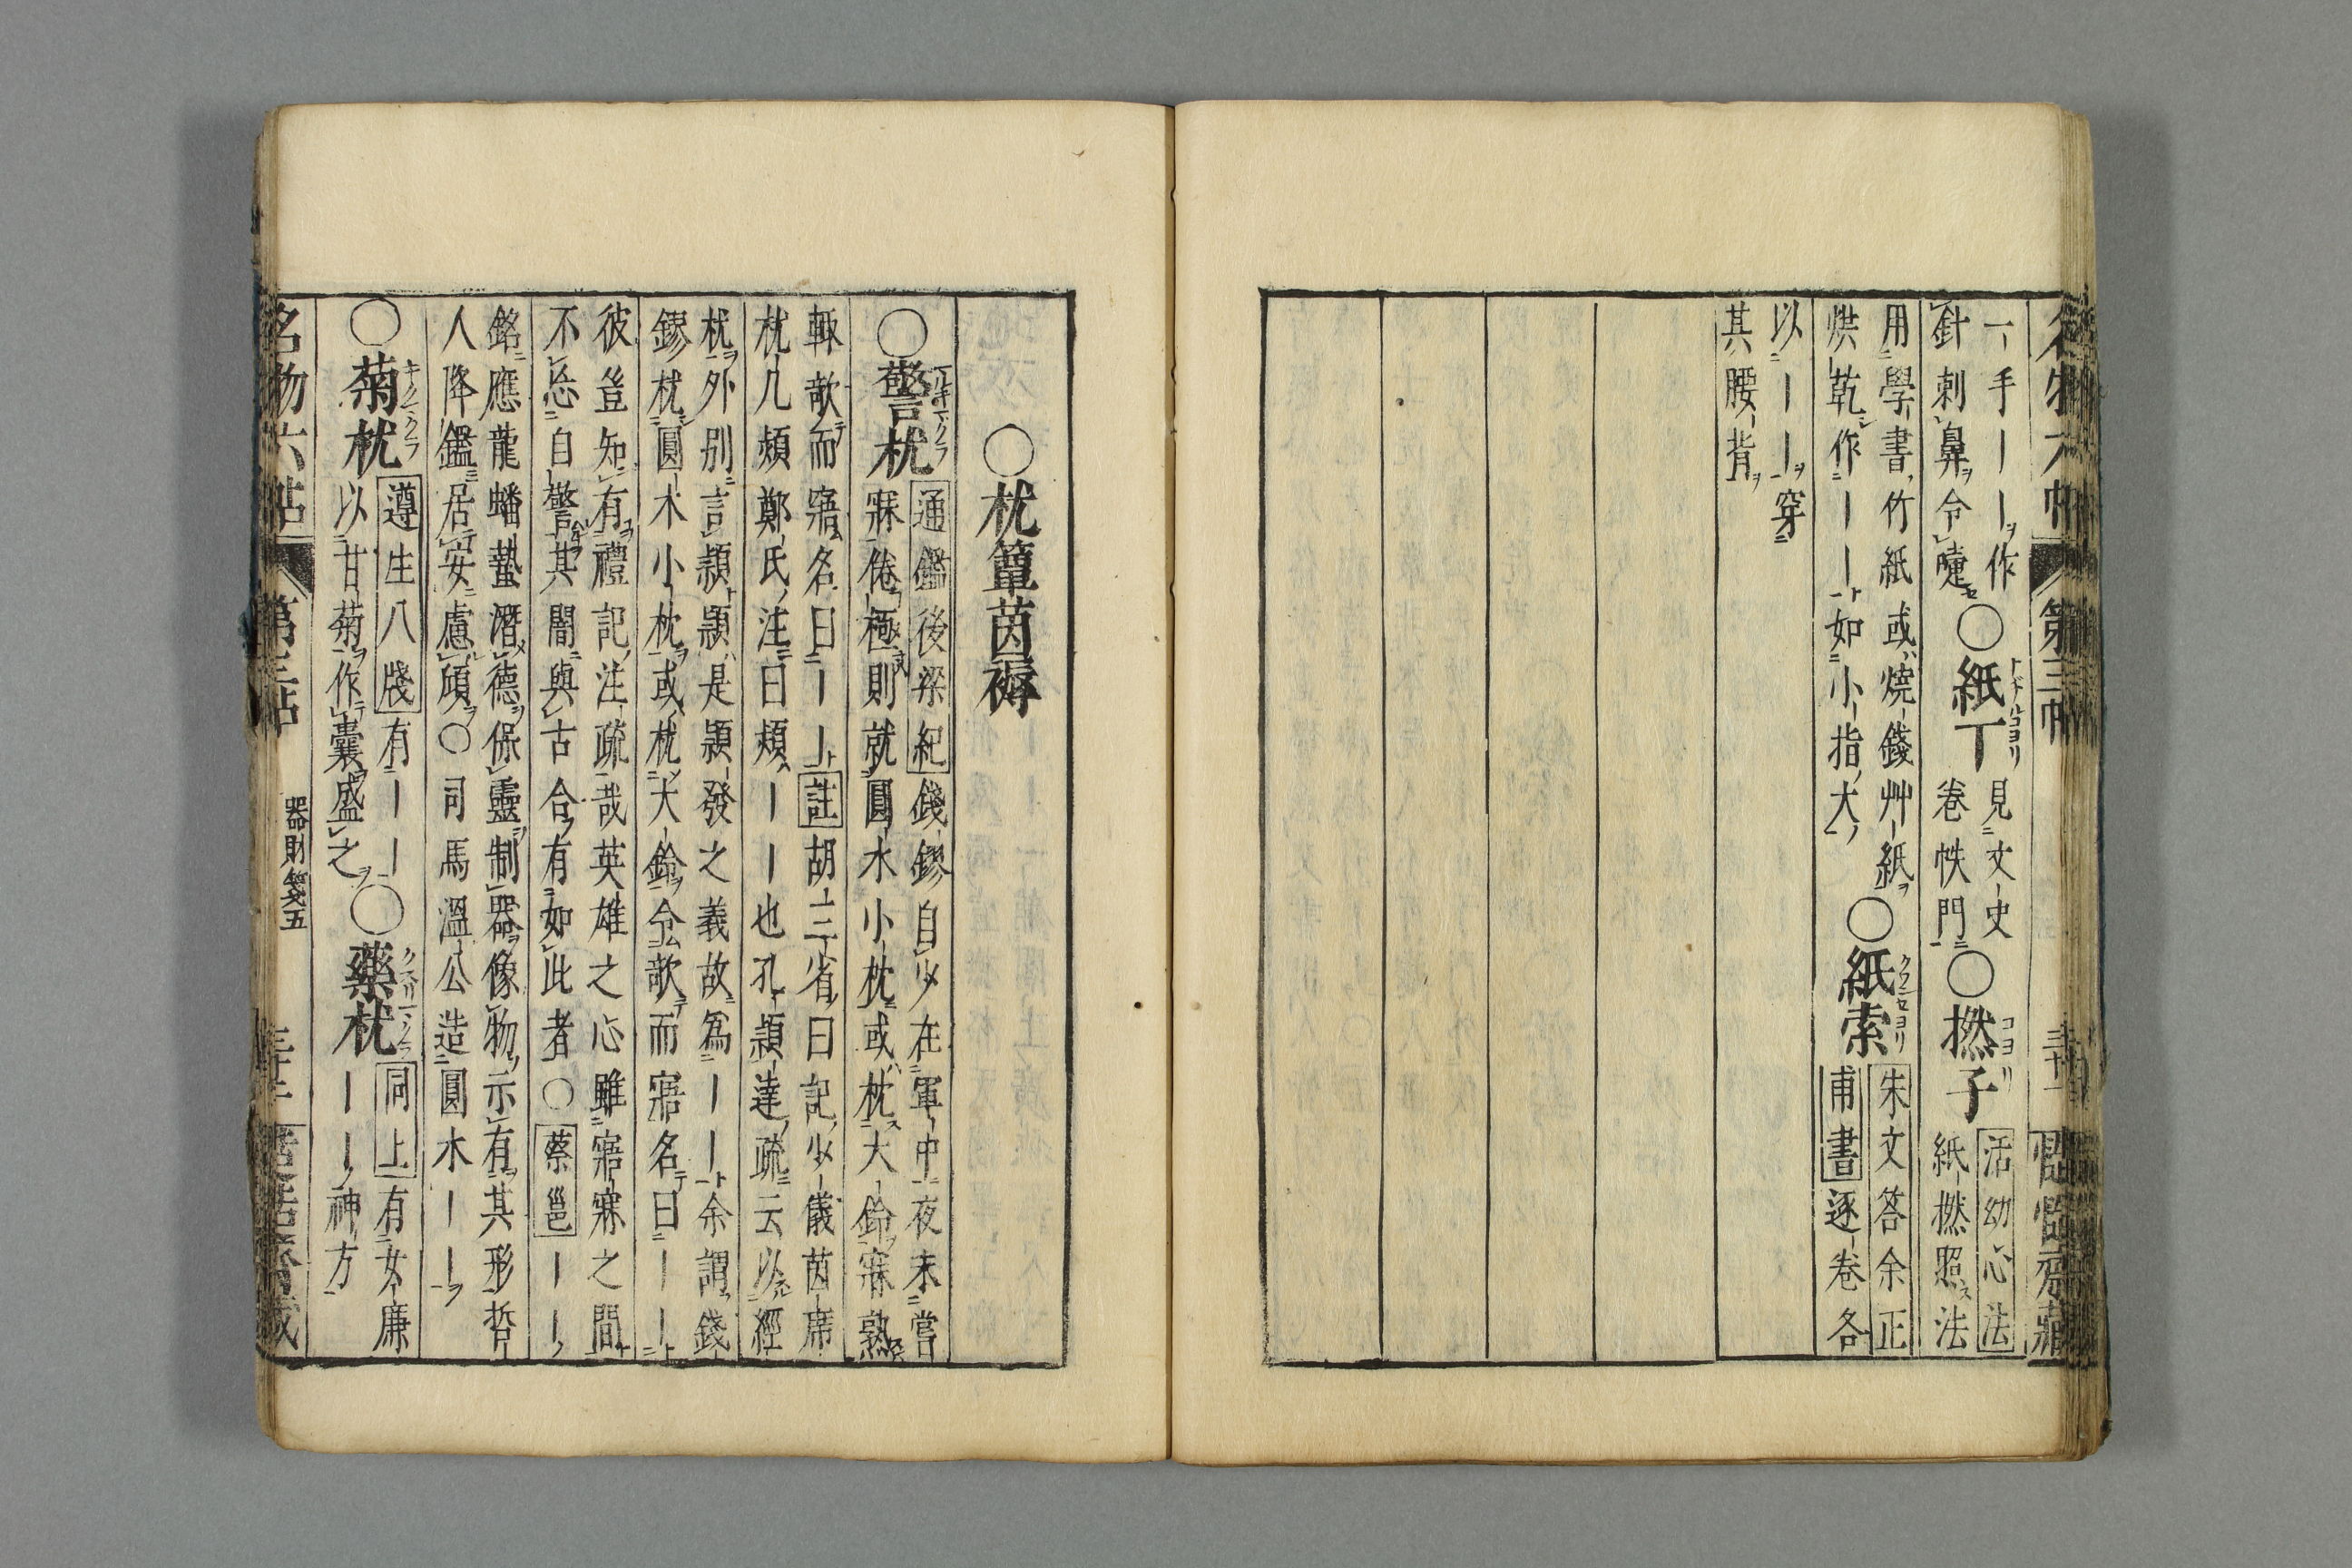 名物六帖 第三帖 三十一 恬恬齋藏
一手｜｜ヲ作
針刺鼻ヲ令嚏セ
○紙丁 トヂコヨリ 見文史
卷帙門
○撚子 コヨリ 活幼心法
紙撚照ス法
用學書竹紙或燒錢艸紙ヲ
烘乾作｜｜ト如小指大
○紙索 クワンセヨリ 朱文答余正
甫書逐卷各
以｜｜ヲ穿
其腰背ヲ
○枕簟茵褥
○警枕 マクラ 通鑑後梁紀錢鏐自少在軍中夜未嘗
寐倦極則就圓木小枕或枕大鈴寐熟
輙欹而寤名曰｜｜ト註胡三省曰記少儀茵席
枕几熲鄭氏注曰熲｜｜也孔穎達疏云以經
枕外別言熲熲是熲發之義故爲｜｜ト余謂錢
鏐枕圓木小枕或枕大鈴仝欹而寤名曰｜｜ト
彼豈知有禮記注疏哉英雄之心雖寤寐之間
不忘自警其闇與古合有如此者○蔡邕｜｜
銘應龍蟠蟄潛德保靈制器像物示有其形哲
人降鑑居安慮頃○司馬溫公造圓木｜｜ヲ
○菊枕 キクノマクラ 遵生八牋有｜｜
以甘菊作囊盛之
○藥枕 クスリマクラ 同上有女廉
｜｜神方
名物六帖 第三帖 器財箋五 三十二 恬恬齋藏